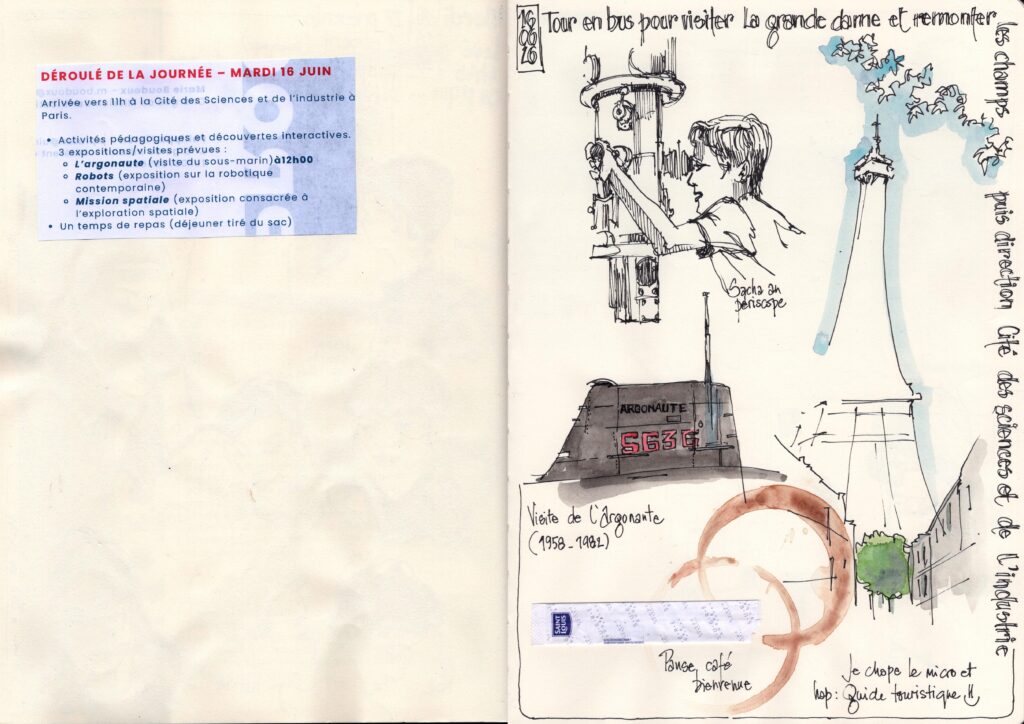 DÉROULÉ DE LA JOURNÉE – MARDI 16 JUIN
Arrivée vers 11h à la Cité des Sciences et de l'industrie à
Paris.
• Activités pédagogiques et découvertes interactives.
3 expositions/visites prévues :
L'argonaute (visite du sous-marin)à12h00
Robots (exposition sur la robotique
contemporaine)
Mission spatiale (exposition consacrée à
l'exploration spatiale)
• Un temps de repas (déjeuner tiré du sac)
16
06
26
Tour en bus pour visiter La grande dame et remonter
les champs puis direction Cité des sciences et de l'industrie
Sacha au
périscope
ARGONAUTE
S636
Visite de l'Argonaute
(1958-1982)
SAINT
LOUIS
Pause café
bienvenue
Je chope le micro et
hop: Guide touristique